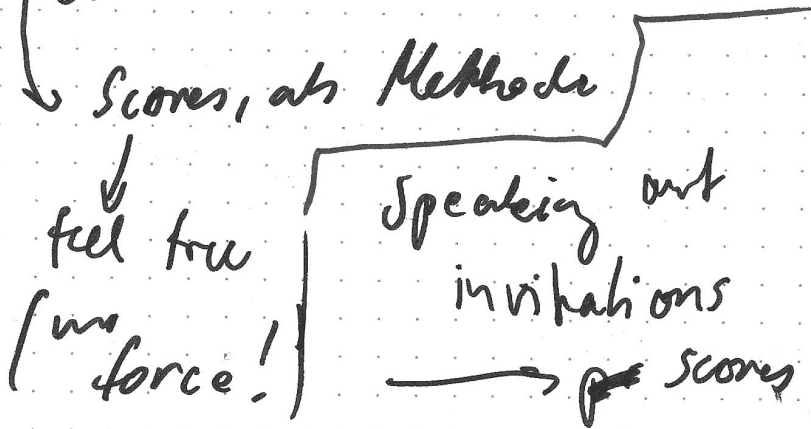 Scores, als Methode
feel free
(no
force!)
Speaking out
invitations
→ scores